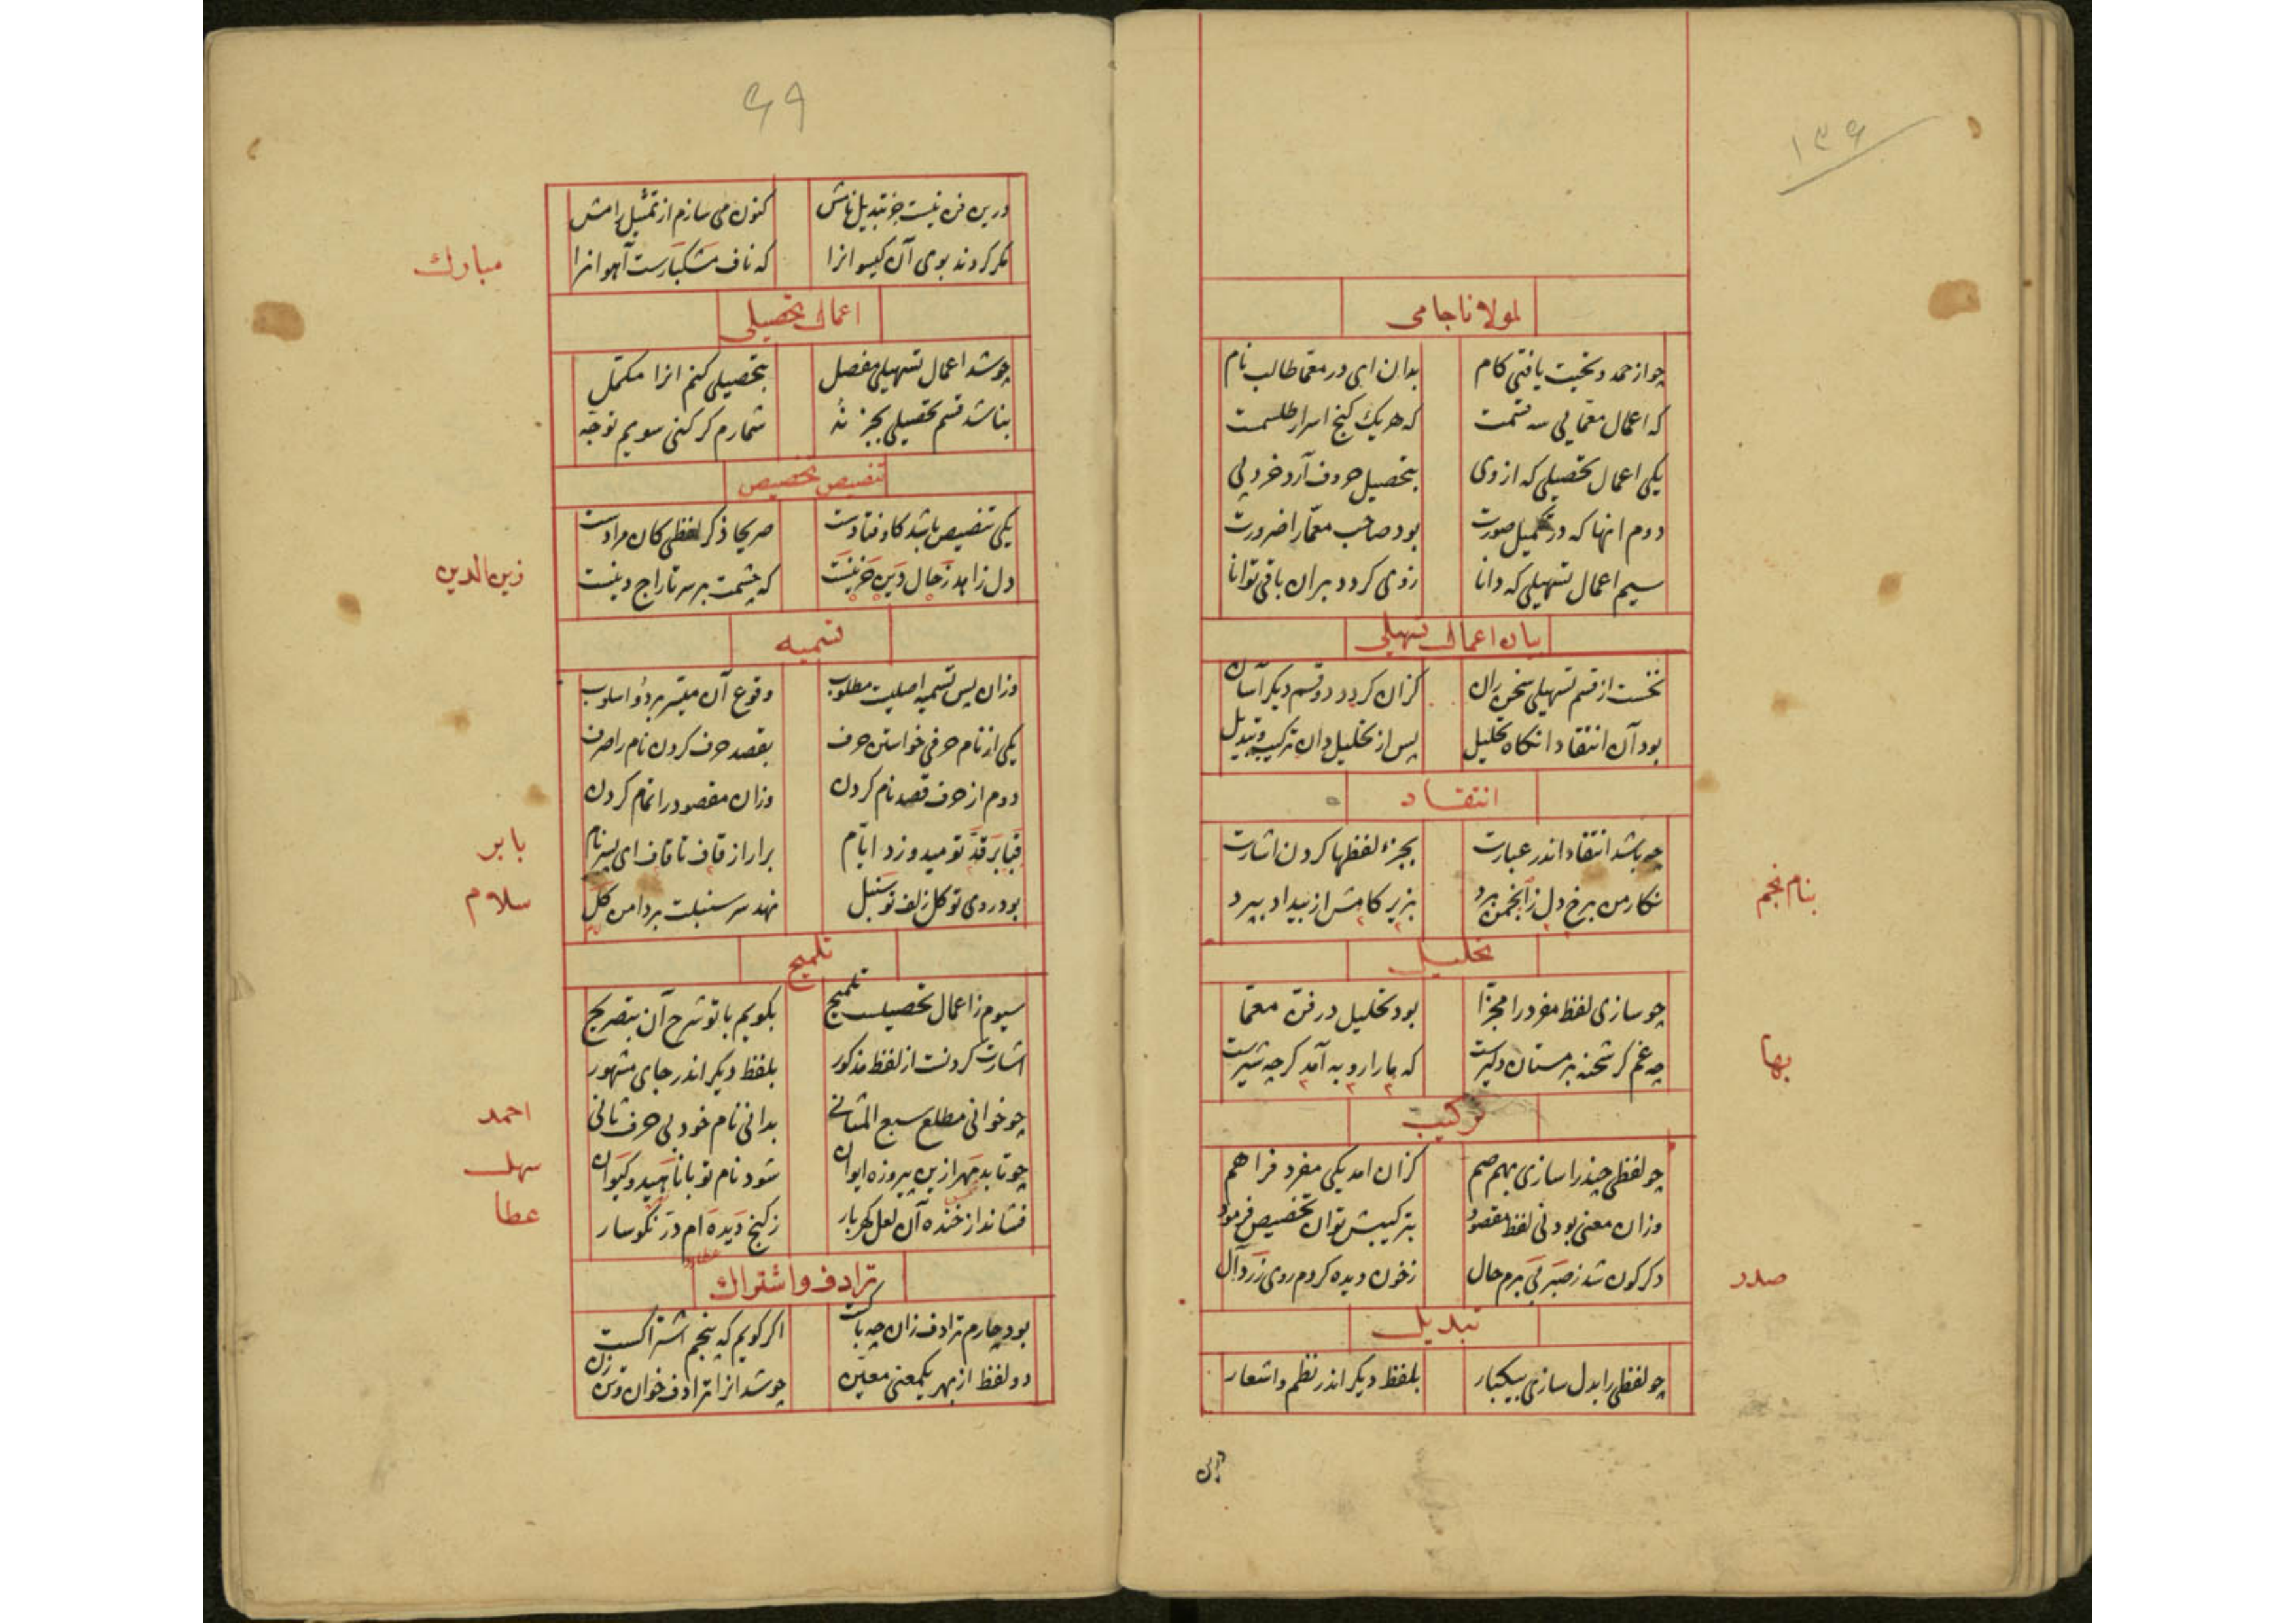 ۱۳۶
لمولانا جامی
چو از حمد و تحیت یافتی کام بدان ای در معما طالب نام
که اعمال معمایی سه قسمت که هر یک کنج اسرار طلسمت
یکی اعمال تحصیلی که از وی بتحصیل حروف آرد خرد پی
دوم انها که در تکمیل صورت بود صاحب معما را ضرورت
سیم اعمال تسهیلی که دانا زوی کردد بران باقی توانا
بیان اعمال تسهیلی
نخست از قسم تسهیلی سخن ران کزان کردد دو قسم دیکر آسان
بود آن انتقاد انکاه تحلیل پس از تحلیل دان ترکیب و تبدیل
انتقاد
چه باشد انتقاد اندر عبارت بجزء لفظها کردن اشارت
نکار من برخ دل ز انجمن برد بزیر کامش از بیداد بپرد
بنام نجم
تحلیل
چو سازی لفظ مفرد را مجزا بود تحلیل در فن معما
چه غم کر شحنه بر مستان دلیرست که ما را رو به آمد کرچه شیرست
بها
ترکیب
چو لفظی چند را سازی بهم ضم کزان امد یکی مفرد فراهم
وزان معنی بود نی لفظ مقصود بترکیبش توان تخصیص فرمود
دکرکون شد ز صبر بی برم حال زخون دیده کردم روی زرد آل
صدر
تبدیل
چو لفظی را بدل سازی بیکبار بلفظ دیکر اندر نظم و اشعار
درین
۶۹
درین فن نیست جز تبدیل نامش کنون می سازم از تمثیل رامش
مکر کردند بوی آن کیسو انرا که ناف مشکبارست آهو انرا
مبارک
اعمال تحصیلی
چو شد اعمال تسهیلی مفصل بتحصیلی کنم انرا مکمل
بناشد قسم تحصیلی بجز نه شمارم کر کنی سویم توجه
تنصیص تخصیص
یکی تنصیص باشد کاوفتادست صریحا ذکر لفظی کان مرادست
دل زاهد ز حال دین حزینست که چشمت بر سر تاراج دینست
زین الدین
تسمیه
وزان پس تسمیه اصلیت مطلوب وقوع آن میسر بر دو اسلوب
یکی از نام حرفی خواستن حرف بقصد حرف کردن نام را صرف
دوم از حرف قصد نام کردن وزان مقصود را تمام کردن
قبا بر قد تو میدوزد ایام برار از قاف تا قاف ای پسر نام
بابر
بود روی تو کل زلف تو سنبل نهد سر سنبلت بر دامن کل
سلام
تلمیح
سیوم ز اعمال تحصیلست تلمیح بکویم با تو شرح آن بتصریح
اشارت کردنت از لفظ مذکور بلفظ دیکر اندر جای مشهور
چو خوانی مطلع سبع المثانی بدانی نام خود بی حرف ثانی
احمد
چو تابد مهر ازین پیروزه ایوان شود نام تو با ناهید و کیوان
سهل
فشاند از خنده آن لعل کهربار زکنج دیده ام در نکوسار
عطا
ترادف و اشتراک
بود چارم ترادف زان چه باکست اکر کویم که پنجم اشتراکست
دو لفظ از بهر یکمعنی معین چو شد انرا ترادف خوان